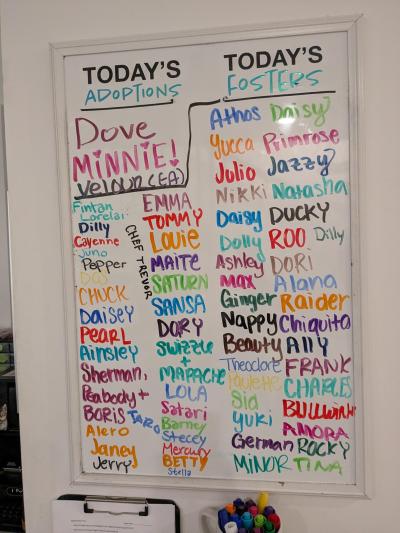 TODAY'S
ADOPTIONS
Dove
MiNNiE!
Velour (EA)
Fintan
Lorelai
Dilly
Cayenne
Juno
Pepper
CHUCK
DAiSEY
PEARL
Ainsley
Sherman,
Peabody +
BORiS
TARO
Alero
Janey
Jerry
CHEF TREVOR
EMMA
TOMMY
Louie
MAITE
SATURN
SANSA
DORY
SWizzle
+
MAPACHE
LOLA
Satari
Barney
Stecey
Mercury
BETTY
Stella
TODAY'S
FOSTERS
Athos Daisy?
Yucca Primrose
Julio Jazzy?
Nikki Natasha
Daisy DUCKY
Dolly ROO Dilly
Ashley DORi
Max Alana
Ginger Raider
Nappy Chiquita
Beauty Ally
Theodore FRANK
Paulette CHARLES
Sia BULLWINKLE
Yuki AMORA
German ROCKY
MINOR TINA